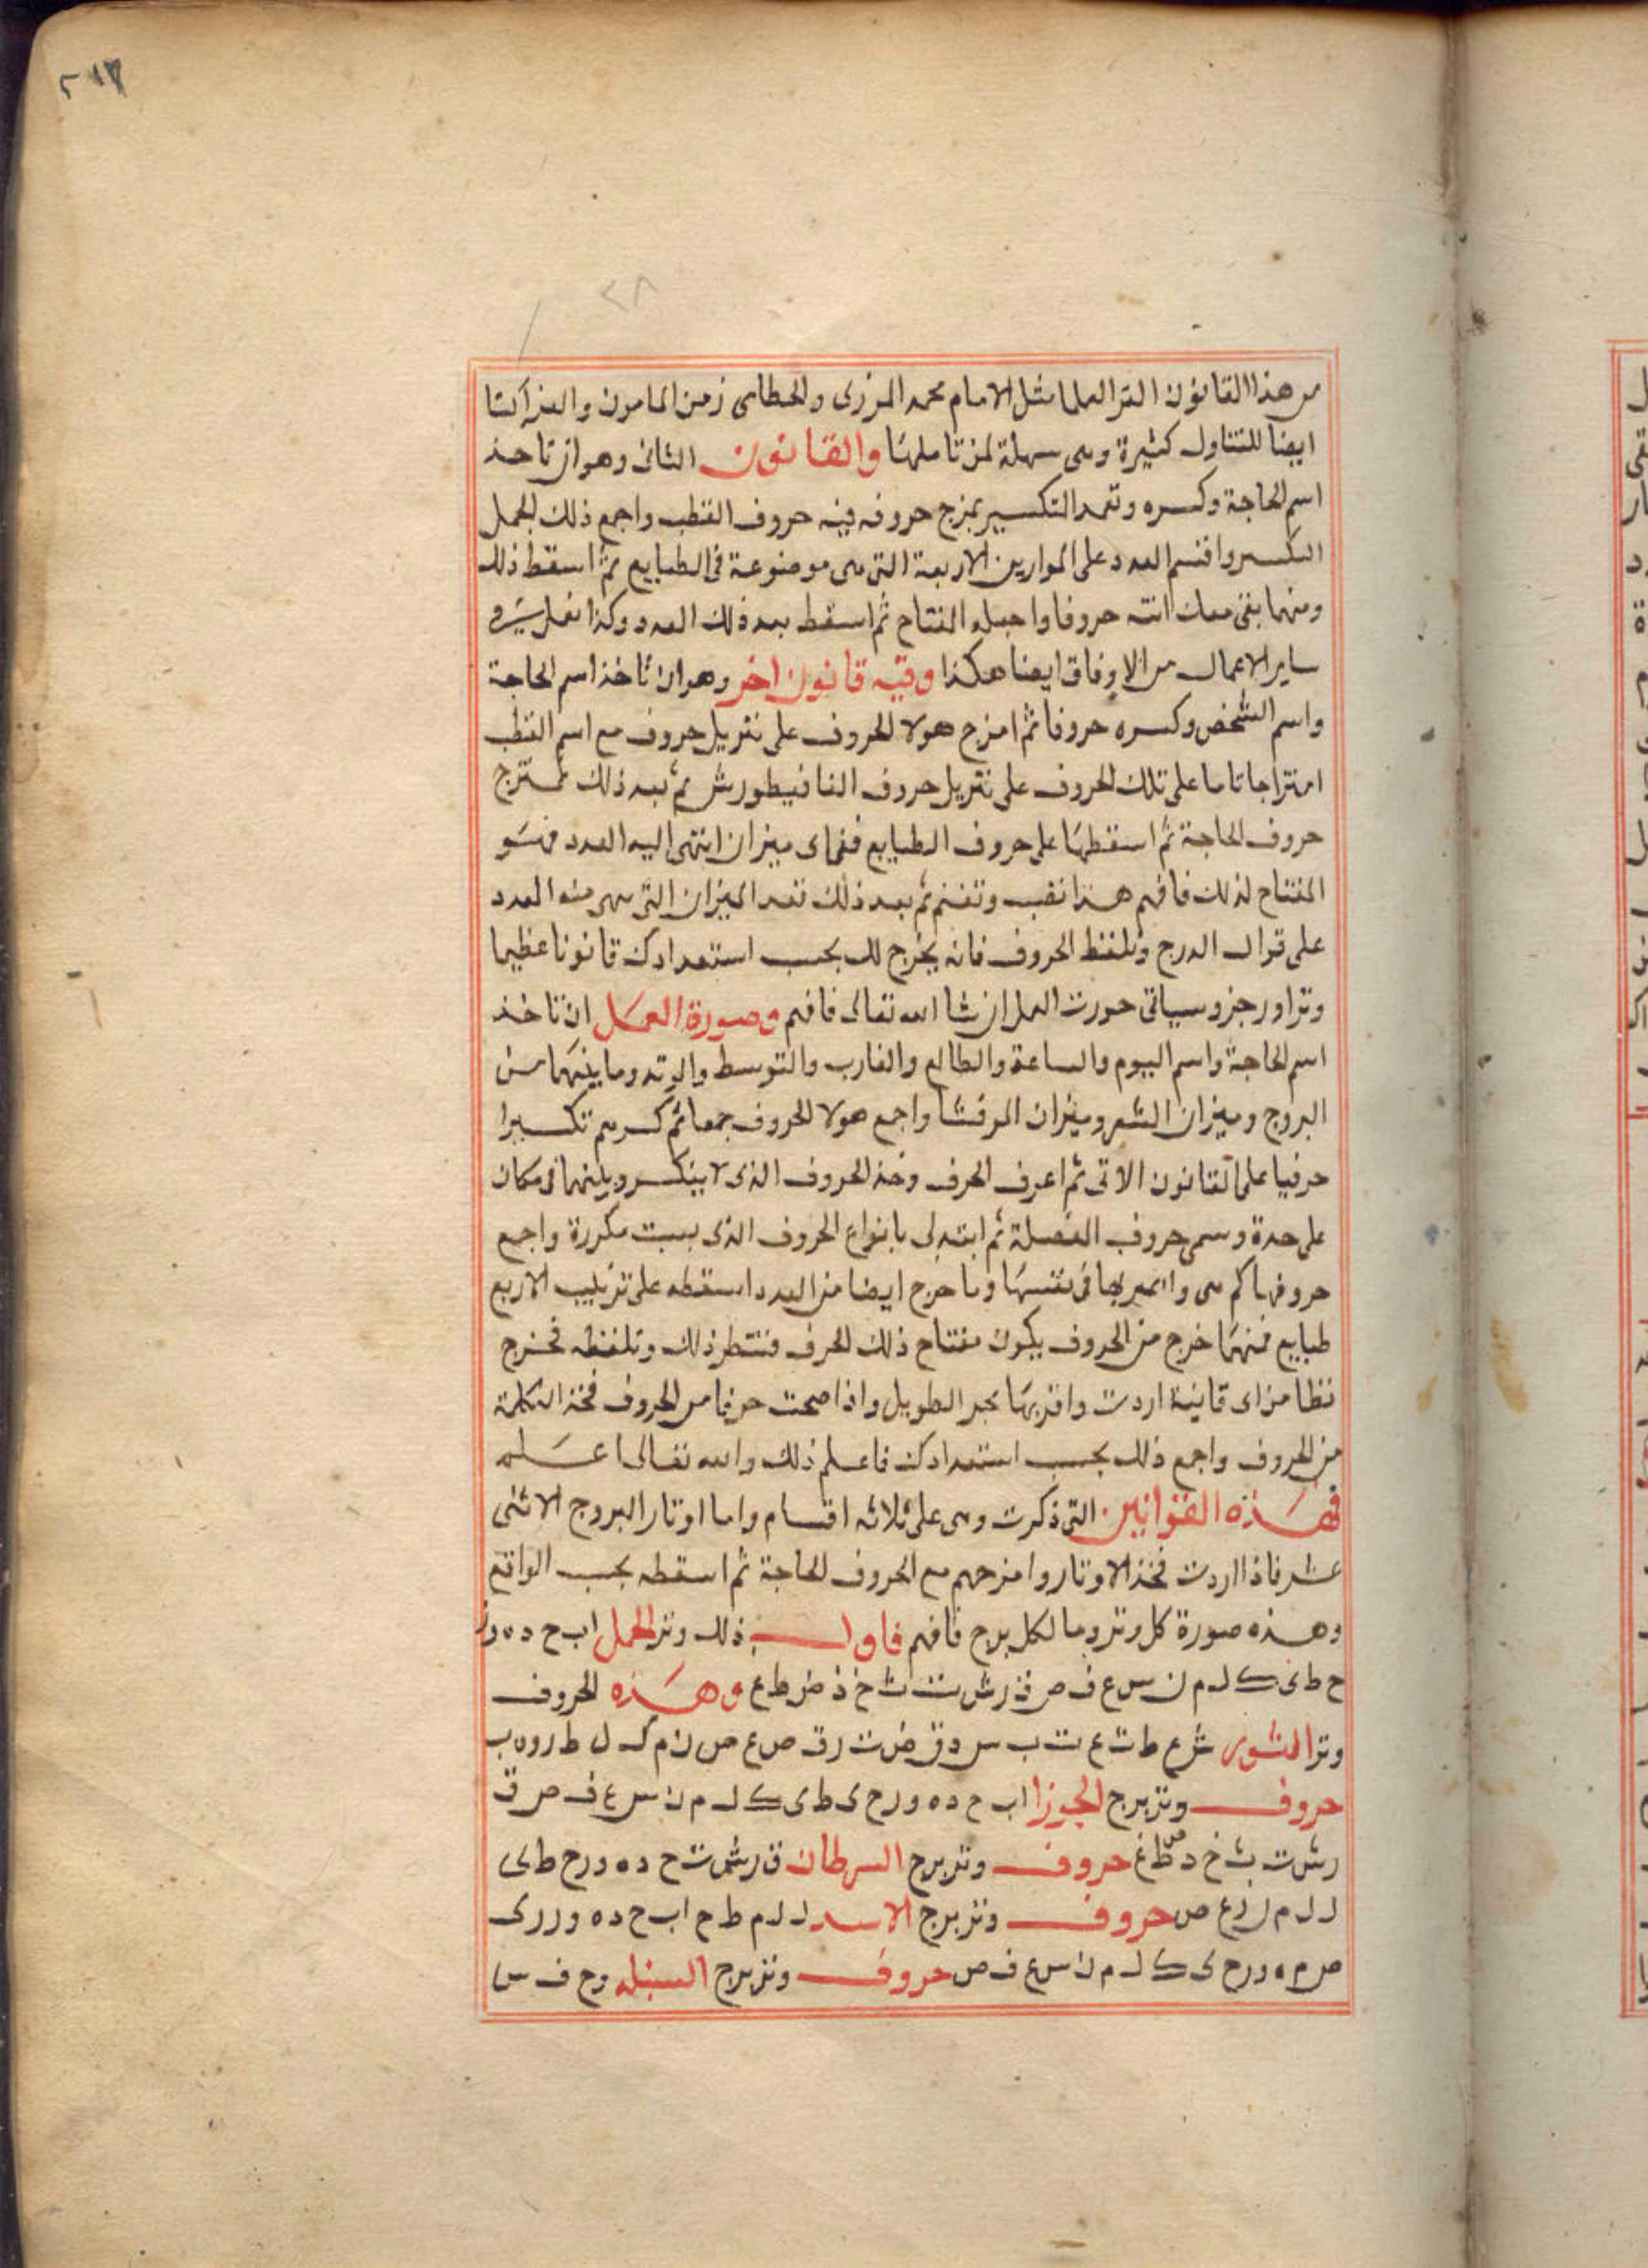 ٢١٣
٢٨
من هذا القانون اكثر العلما مثل الامام محمد المرزى والخطاى زمن المامون والعز
ايضا للتناول كثيرة وهى سهلة لمن تاملها والقانون الثانى وهو ان تاخذ
اسم الحاجة وكسره وتعمد التكسير بمزج حروفه فيه حروف القطب واجمع ذلك الجمل
الكسر واقسم العدد على الموازين الاربعة التى هى موضوعة فى الطبايع ثم اسقط ذلك
ومنهما بقى معك حروفا واجعله المفتاح ثم اسقط بعد ذلك العدد وكذا تفعل
ساير الاعمال من الاوفاق ايضا هكذا وفيه قانون اخر وهو ان تاخذ اسم الحاجة
واسم الشخص وكسره حروفا ثم امزج هولا الحروف على تنزيل حروف مع اسم القطب
امتزاجا تاما على تلك الحروف على تنزيل حروف الفافيطورش ثم بعد ذلك تمتزج
حروف الحاجة ثم اسقطها على حروف الطبايع ففى اى ميزان انتهى اليه العدد فهو
المفتاح لذلك فافهم هذا وتغنم ثم بعد ذلك تعد الميزان التى هى منه العدد
على توال الدرج وتلفظ الحروف فانه يخرج لك بحسب استعدادك قانونا عظيما
وترا ورجز وسياتى صورت العمل ان شا الله تعالى فافهم وصورة العمل ان تاخذ
اسم الحاجة واسم اليوم والساعة والطالع والغارب والتوسط والوتد وما بينهما من
البروج وميزان الشعر وميزان المرقشا واجمع هولا الحروف جمعا ثم كسرهم تكسيرا
حرفيا على القانون الاتى ثم اعرف الحرف وخذ الحروف الذى لا ينكسر فى مكان
على حدة وسمى حروف الفصلة ثم ابتدى بانواع الحروف الذى مكررة واجمع
حروفها كم هى واضربها فى نفسها وما خرج ايضا من العدد اسقطه على ترتيب الاربع
طبايع فمنهما خرج من الحروف يكون مفتاح ذلك الحرف فتنتظر ذلك وتلفظه فخرج
نظا من اى قافية اردت واضربها بحر الطويل واذا صحت حرفا من الحروف فخذ الكلمة
من الحروف واجمع ذلك بحسب استعدادك فاعلم ذلك والله تعالى اعلم
فهذه القوانين التى ذكرت وهى على ثلاثه اقسام واما اوتار البروج الاثنى
عشر فاذا اردت فخذ الاوتار وامزجهم مع الحروف الحاجة ثم اسقطه بحسب الواقع
وهذه صورة كل وتر وما لكل برج فافهم فاول ذلك وتر الحمل ا ب ح د ه و ز
ح ط ى ك ل م ن س ع ف ص ق ر ش ت ث خ ذ ض ظ غ وهذه الحروف
وتر الثور ش ع ط ث ع ت ب س د ق ض ث ر ق ص ع ص ن م ك ل ط ر و ه ب
حروف وتر برج الجوزا ا ب ح د ه و ز ح ى ط ى ك ل م ن س ع ف ص ق
ر ش ت ث خ ذ ض ظ غ حروف وتر برج السرطان ق ر ش ث ح د ه و ز ح ط ى
ل ل م ن ع ص حروف وتر برج الاسد ل ل م ط ح ا ب ح د ه و ز ر ى
ص م ه و ز ح ى ك ل م ن س ع ف ص حروف وتر برج السنبله و ح ف س